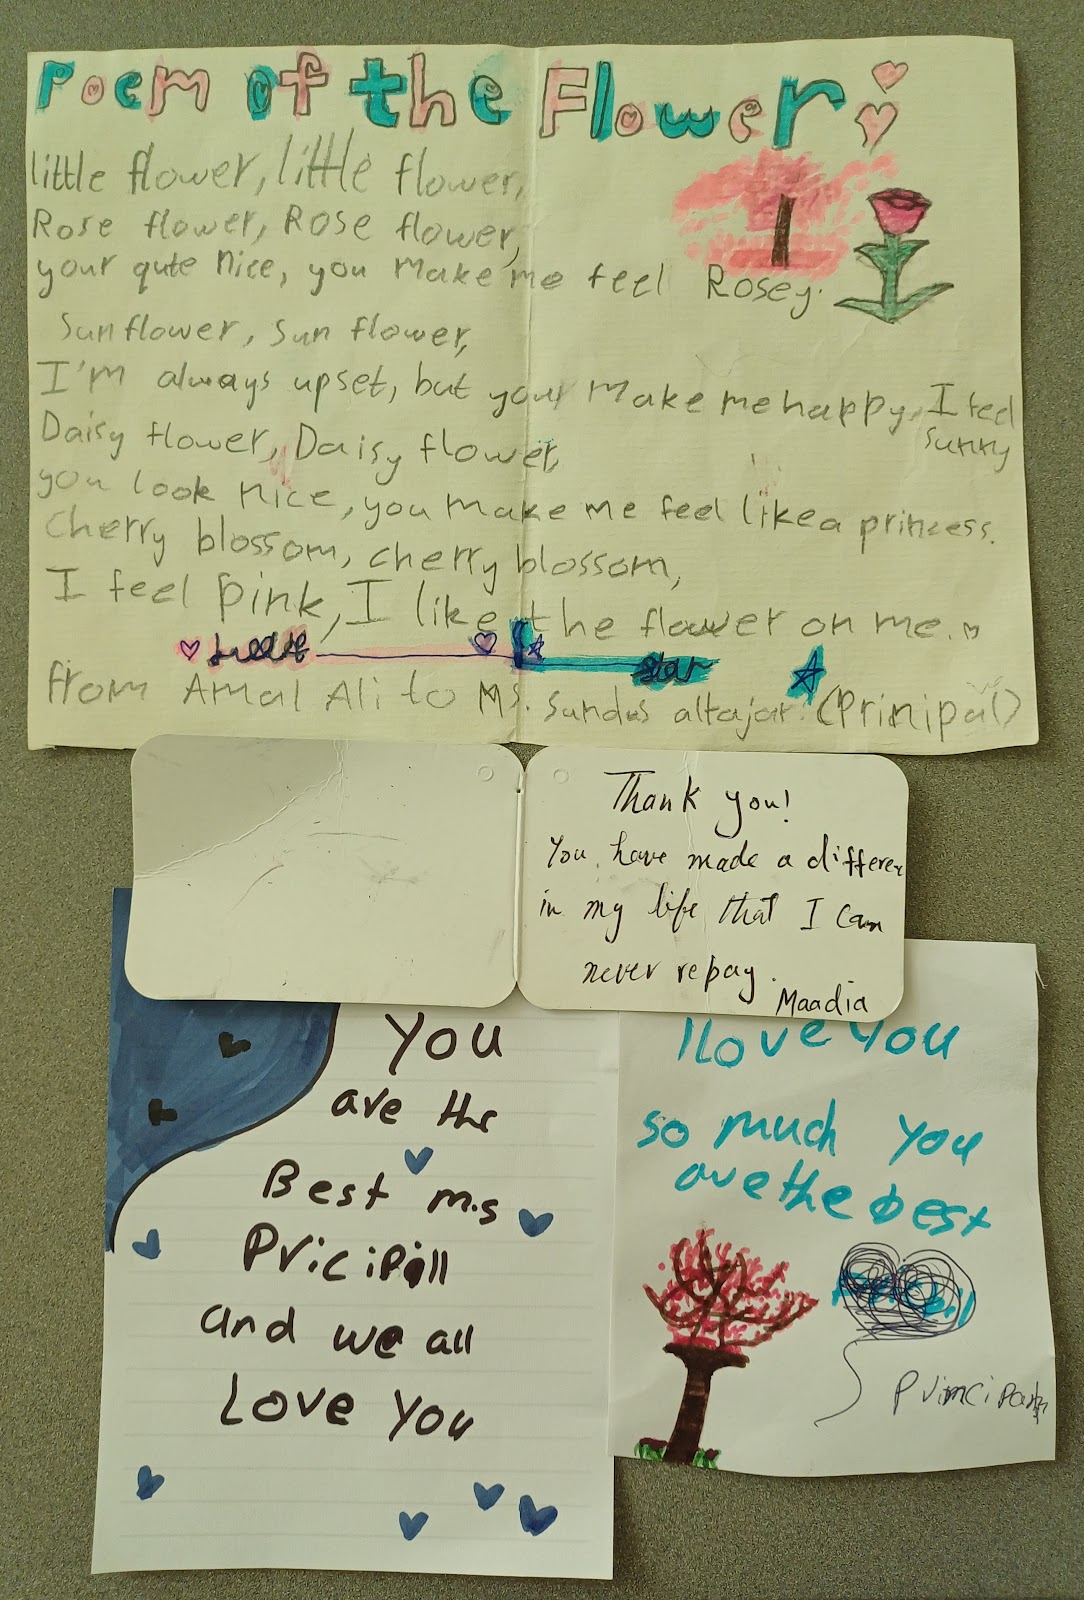 Poem of the Flower
little flower, little flower,
Rose flower, Rose flower,
your qute nice, you make me feel Rosey.
Sunflower, Sun flower,
I'm always upset, but your make me happy, I feel
sunny
Daisy flower, Daisy flower,
you look nice, you make me feel like a princess.
Cherry blossom, cherry blossom,
I feel pink, I like the flower on me.
star
from Amal Ali to Ms. Sundus altajar (Prinipal)
Thank you!
You have made a differen
in my life that I can
never repay.
Maadia
You
are the
Best m.s
Pricipill
and we all
Love You
I love you
so much you
are the best